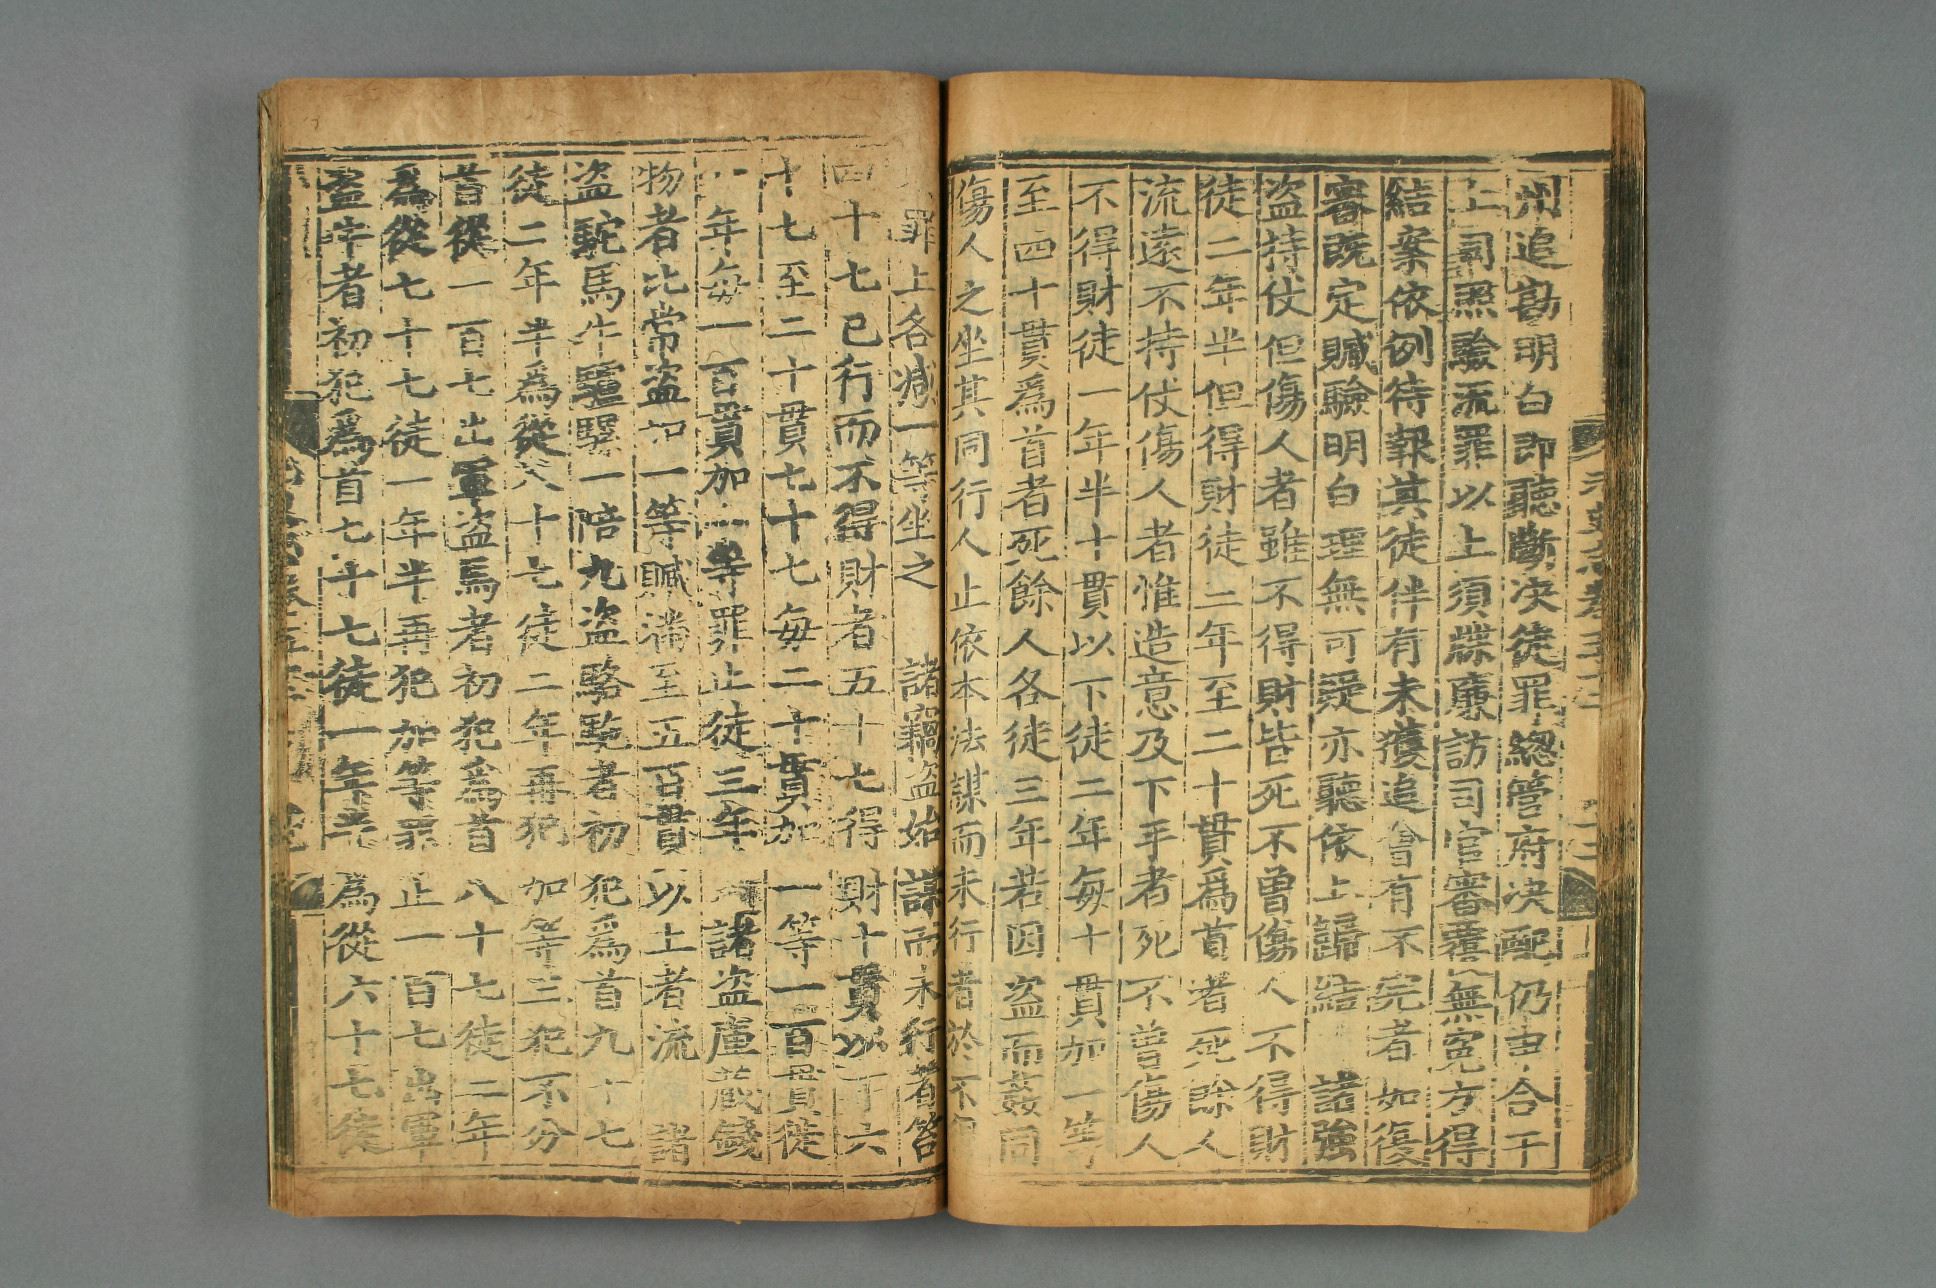 州追勘明白即聽斷決徒罪緫管府决配仍申合干
上司照驗流罪以上須牒廉訪司官審覆無寃方得
結案依例待報其徒伴有未獲追會有不完者如復
審既定贓驗明白理無可疑亦聽依上歸結 諸強
盗持仗但傷人者雖不得財皆死不曾傷人不得財
徒二年半但得財徒三年至二十貫爲首者死餘人
流遠不持仗傷人者惟造意及下手者死不曾傷人
不得財徒一年半十貫以下徒二年每十貫加一等
至四十貫爲首者死餘人各徒三年若因盗而姦同
傷人之坐其同行人止依本法謀而未行者於不得
罪上各减一等坐之 諸竊盗始謀而未行者笞
四十七已行而不得財者五十七得財十貫以下六
十七至二十貫七十七每二十貫加一等一百貫徒
一年每一百貫加一等罪止徒三年 諸盗庫藏錢
物者比常盗加一等贓滿至五百貫以上者流 諸
盗駝馬牛驢騾一陪九盗駱駝者初犯爲首九十七
徒二年半爲從八十七徒二年再犯加等三犯不分
首從一百七出軍盗馬者初犯爲首八十七徒二年
爲從七十七徒一年半再犯加等罪止一百七出軍
盗牛者初犯爲首七十七徒一年半爲從六十七徒